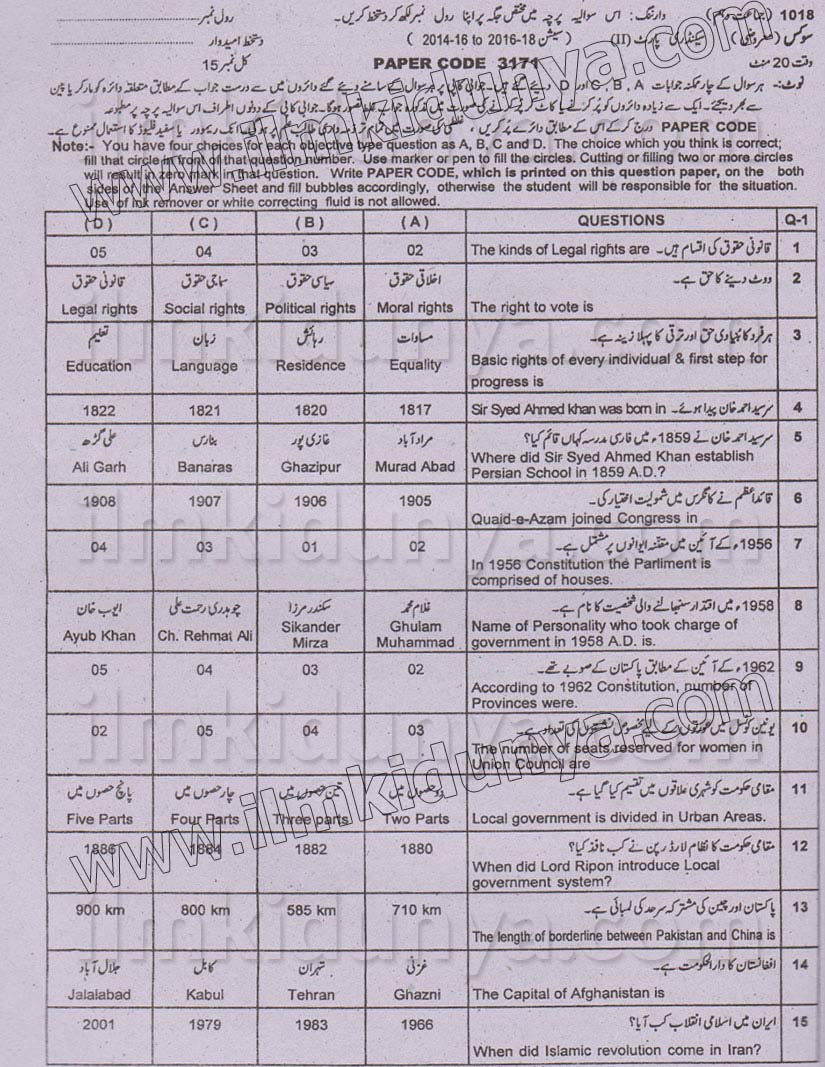 1018 (جماعت دہم) وارننگ: اس سوالیہ پرچہ میں مختص جگہ پر اپنا رول نمبر لکھ کر دستخط کریں۔ رول نمبر
سوکس (معروضی) سیکنڈری پارٹ (II) (سیشن 2014-16 to 2016-18) دستخط امیدوار
وقت 20 منٹ PAPER CODE 3171 کل نمبر 15
نوٹ:- ہر سوال کے چار ممکنہ جوابات A، B، C اور D دیئے گئے ہیں۔ جوابی کاپی پر ہر سوال کے سامنے دیئے گئے دائروں میں سے درست جواب کے مطابق متعلقہ دائرہ کو مارکر یا پین
سے بھر دیجئے۔ ایک سے زیادہ دائروں کو پُر کرنے یا کاٹ کر پُر کرنے کی صورت میں مذکورہ جواب غلط تصور ہوگا۔ جوابی کاپی کے دونوں اطراف اس سوالیہ پرچہ پر مطبوعہ
PAPER CODE درج کر کے اس کے مطابق دائرے پُر کریں، غلطی کی صورت میں تمام تر ذمہ داری طالب علم پر ہوگی۔ انک ریموور یا سفید فلیوڈ کا استعمال ممنوع ہے۔
Note:- You have four choices for each objective type question as A, B, C and D. The choice which you think is correct;
fill that circle in front of that question number. Use marker or pen to fill the circles. Cutting or filling two or more circles
will result in zero mark in that question. Write PAPER CODE, which is printed on this question paper, on the both
sides of the Answer Sheet and fill bubbles accordingly, otherwise the student will be responsible for the situation.
Use of ink remover or white correcting fluid is not allowed.
( D ) ( C ) ( B ) ( A ) QUESTIONS Q-1
05 04 03 02 The kinds of Legal rights are قانونی حقوق کی اقسام ہیں۔ 1
قانونی حقوق سماجی حقوق سیاسی حقوق اخلاقی حقوق ووٹ دینے کا حق ہے۔ 2
Legal rights Social rights Political rights Moral rights The right to vote is
تعلیم زبان رہائش مساوات ہر فرد کا بنیادی حق اور ترقی کا پہلا زینہ ہے۔ 3
Education Language Residence Equality Basic rights of every individual & first step for
progress is
1822 1821 1820 1817 Sir Syed Ahmed khan was born in سرسید احمد خان پیدا ہوئے۔ 4
علی گڑھ بنارس غازی پور مراد آباد سرسید احمد خان نے 1859ء میں فارسی مدرسہ کہاں قائم کیا؟ 5
Ali Garh Banaras Ghazipur Murad Abad Where did Sir Syed Ahmed Khan establish
Persian School in 1859 A.D.?
1908 1907 1906 1905 قائداعظم نے کانگرس میں شمولیت اختیار کی۔ 6
Quaid-e-Azam joined Congress in
04 03 01 02 1956ء کے آئین میں مقننہ ایوانوں پر مشتمل ہے۔ 7
In 1956 Constitution the Parliment is
comprised of houses.
ایوب خان چوہدری رحمت علی سکندر مرزا غلام محمد 1958ء میں اقتدار سنبھالنے والی شخصیت کا نام ہے۔ 8
Ayub Khan Ch. Rehmat Ali Sikander Mirza Ghulam Muhammad Name of Personality who took charge of
government in 1958 A.D. is.
05 04 03 02 1962ء کے آئین کے مطابق پاکستان کے صوبے تھے۔ 9
According to 1962 Constitution, number of
Provinces were.
02 05 04 03 یونین کونسل میں عورتوں کے لیے مخصوص نشستوں کی تعداد ہے۔ 10
The number of seats reserved for women in
Union Council are
پانچ حصوں میں چار حصوں میں تین حصوں میں دو حصوں میں مقامی حکومت کو شہری علاقوں میں تقسیم کیا گیا ہے۔ 11
Five Parts Four Parts Three parts Two Parts Local government is divided in Urban Areas.
1886 1884 1882 1880 مقامی حکومت کا نظام لارڈ رپن نے کب نافذ کیا؟ 12
When did Lord Ripon introduce Local
government system?
900 km 800 km 585 km 710 km پاکستان اور چین کی مشترکہ سرحد کی لمبائی ہے۔ 13
The length of borderline between Pakistan and China is
جلال آباد کابل تہران غزنی افغانستان کا دارالحکومت ہے۔ 14
Jalalabad Kabul Tehran Ghazni The Capital of Afghanistan is
2001 1979 1983 1966 ایران میں اسلامی انقلاب کب آیا؟ 15
When did Islamic revolution come in Iran?
www.ilmkidunya.com
www.ilmkidunya.com
ilmkidunya.com
ilmkidunya.com
ilmkidunya.com
ilmkidunya.com